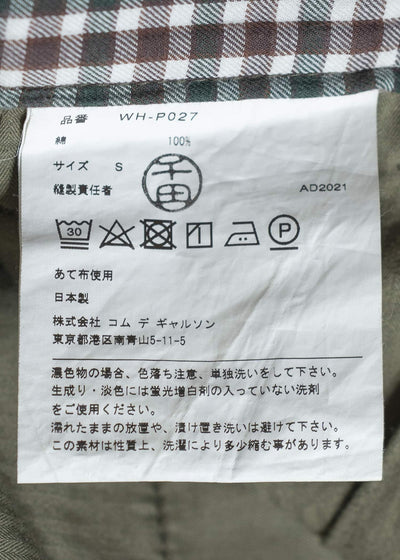 品番 WH-P027
綿 100%
サイズ S
縫製責任者 千田 AD2021
30 P
あて布使用
日本製
株式会社 コム デ ギャルソン
東京都港区南青山5-11-5
濃色物の場合、色落ち注意、単独洗いをして下さい。
生成り・淡色には蛍光増白剤の入っていない洗剤
をご使用ください。
濡れたままの放置や、漬け置き洗いは避けて下さい。
この素材は性質上、洗濯により多少縮む事があります。